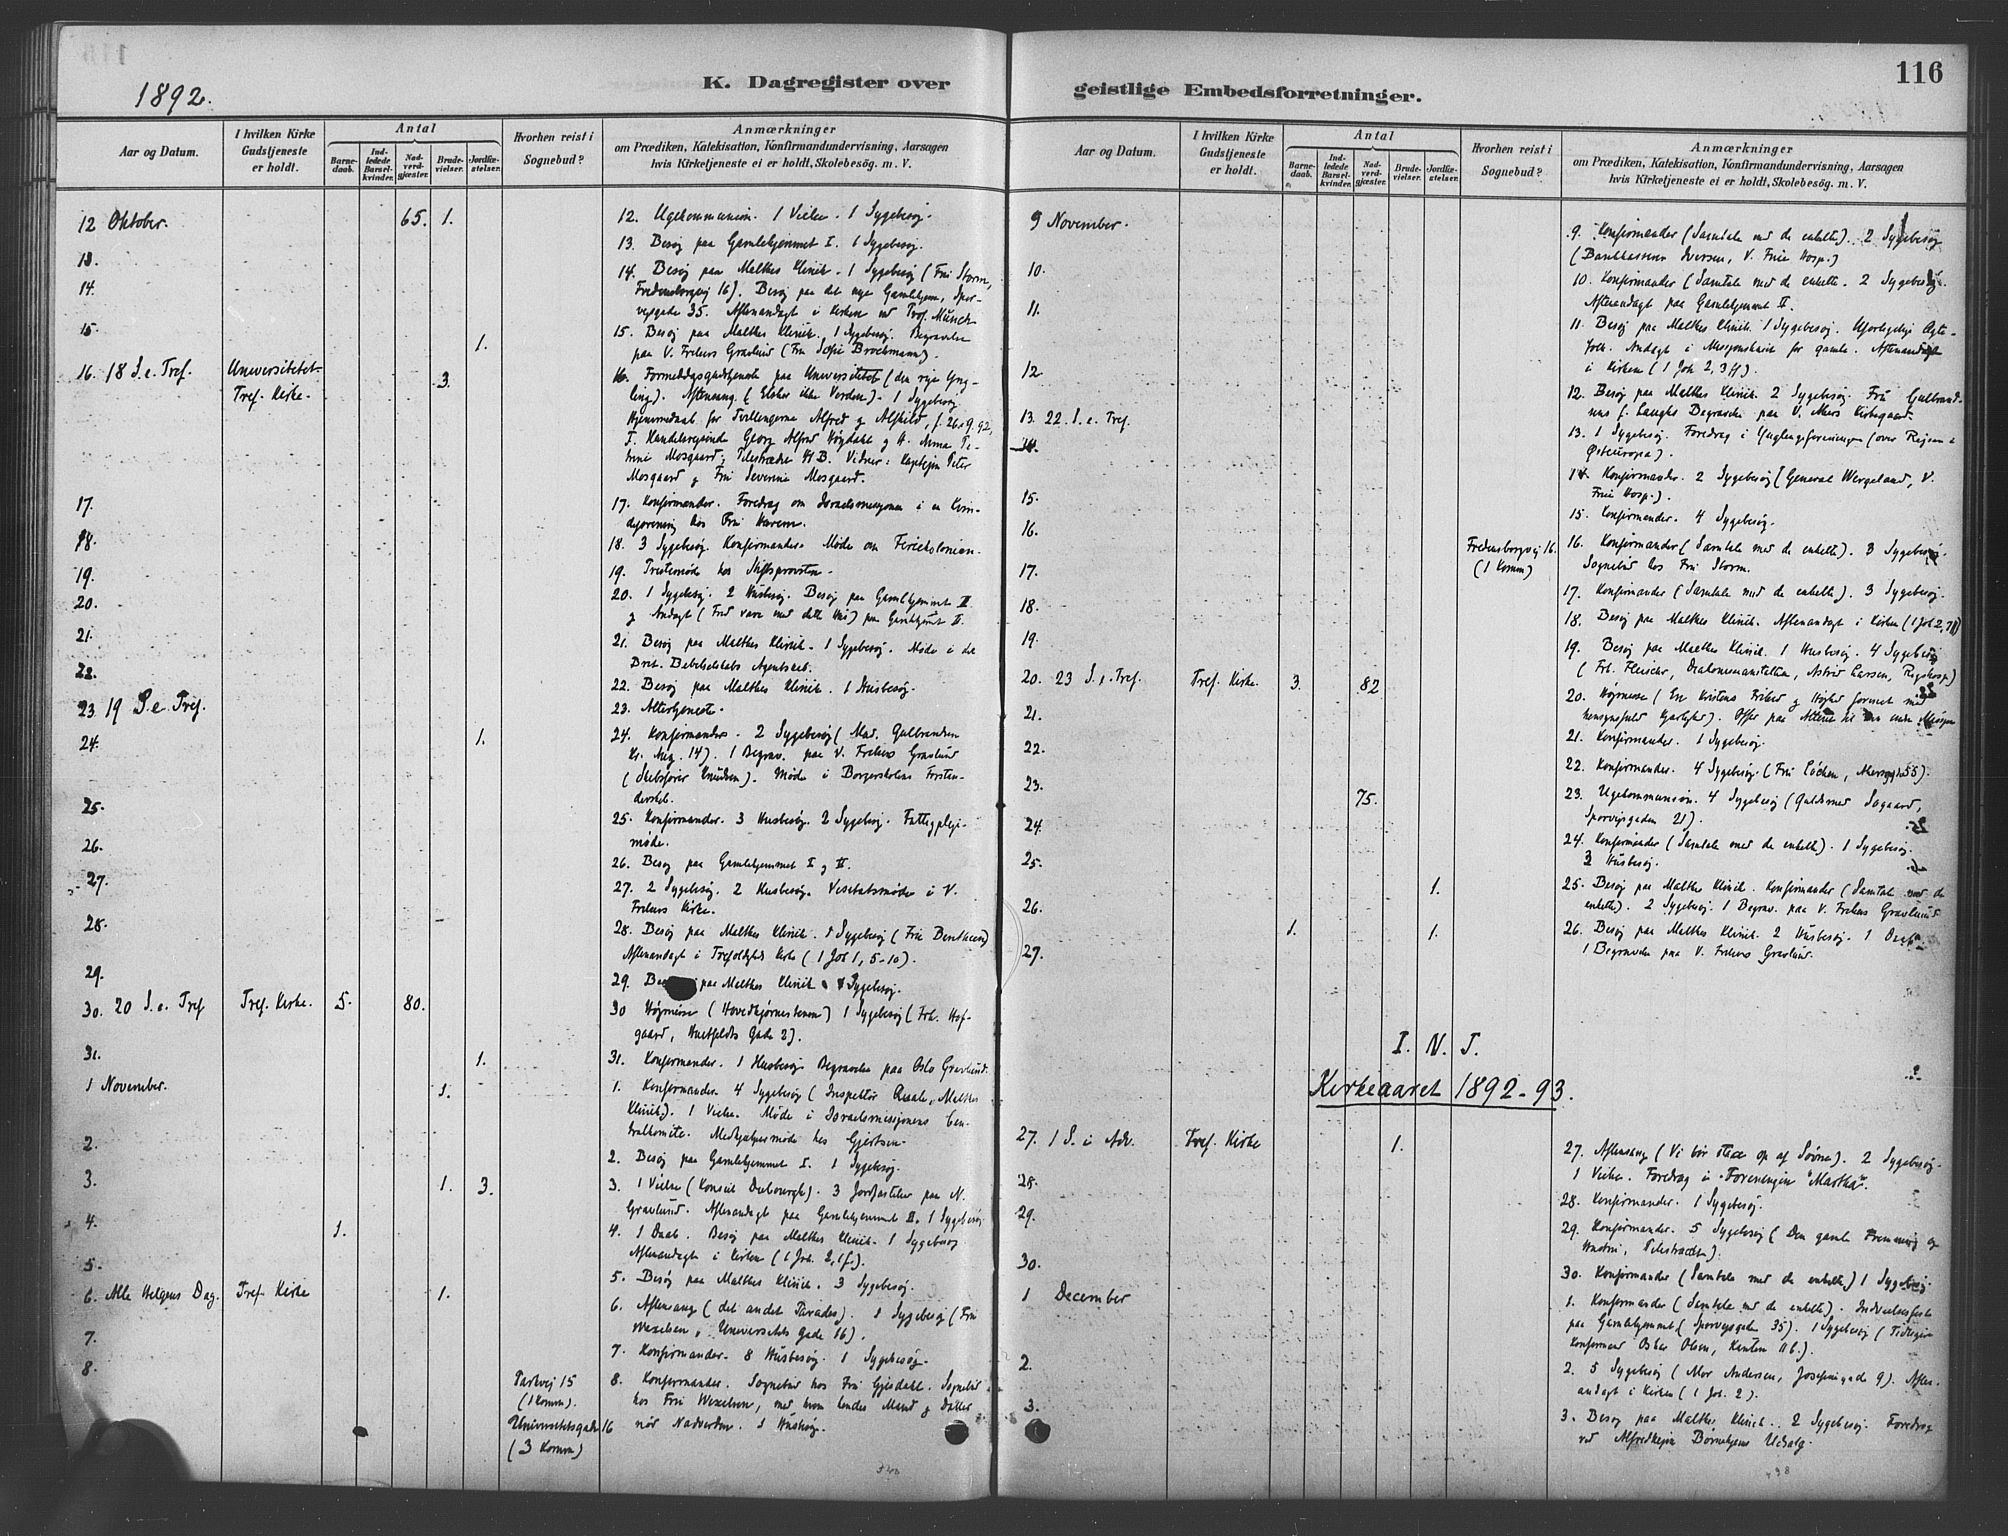 116
1892.
K. Dagregister over
geistlige Embedsforretninger.
Aar og Datum.
I hvilken Kirke Gudstjeneste er holdt.
Antal
Barne-daab.
Ind-ledede Barsel-kvinder.
Nad-verd-gjæster.
Brude-vielser.
Jordfæ-stelser.
Hvorhen reist i Sognebud?
Anmærkninger
om Prædiken, Katekisation, Konfirmandundervisning, Aarsagen
hvis Kirketjeneste ei er holdt, Skolebesøg. m. V.
12 Oktober. 65. 1. 12. Ugekommunion. 1 Vielse. 1 Sygebesøg.
13. 13. Besøg paa Gamlehjemmet I. 1 Sygebesøg.
14. 14. Besøg paa Malthes Klinik. 1 Sygebesøg (Fru Storm,
Fredensborgvej 16). Besøg paa det nye Gamlehjem, Spor-
vejsgade 35. Aftenandagt i Kirken ved Prof. Münch
15. 1. 15. Besøg paa Malthes Klinik. 1 Sygebesøg. Begravelse
paa V. Frelsers Gravlund (Fru Sofie Brochmann).
16. 18 S. e. Tref. Universitetet 3. 16. Formiddagsgudstjeneste paa Universitetet (den rige Yng-
Tref. Kirke. ling). Aftensang. (Elsker ikke Verden). 1 Sygebesøg
Hjemmedaab for Tvillingerne Alfred og Alfhild, f. 26.9.92,
Georg Alfred Høgdahl og H. Anna Pe-
trine Mosgaard; Pilestrædet 41B. Vidner: Kaptejn Peter
Mosgaard og Fru Severine Mosgaard.
17. 17. Konfirmander. Foredrag om Israelsmissionen i en Kvin-
deforening hos Fru Harem.
18. 18. 3 Sygebesøg. Konfirmander. Møde om Feriekolonien.
19. 19. Prestemøde hos Stiftsprovsten.
20. 20. 1 Sygebesøg. 2 Husbesøg. Besøg paa Gamlehjemmet II
og Andagt (Fred være med dette Hus) paa Gamlehjemmet II.
21. 21. Besøg paa Malthes Klinik. 1 Sygebesøg. Møde i det
Brit. Bibelselskabs Agentskab.
22. 22. Besøg paa Malthes Klinik. 1 Husbesøg.
23 19 S. e. Tref. 23. Altertjeneste.
24. 1. 24. Konfirmander. 2 Sygebesøg (Mad. Gulbrandsen
14). 1 Begrav. paa V. Frelsers Gravlund
(Skibsfører Knudsen). Møde i Borgerskolens Forstan-
derskab.
25. 25. Konfirmander. 3 Husbesøg. 2 Sygebesøg. Fattigpleje-
møde.
26. 26. Besøg paa Gamlehjemmet I og II.
27. 27. 2 Sygebesøg. 2 Husbesøg. Visitatsmøde i V.
Frelsers Kirke.
28. 28. Besøg paa Malthes Klinik. 1 Sygebesøg (Fru Bentheen)
Aftenandagt i Trefoldigheds Kirke (1 Joh 1, 5-10).
29. 29. paa Malthes Klinik. Sygebesøg.
30. 20 S. e. Tref Tref. Kirke. 5. 80. 30 Højmesse (Hovedhjørnestenen) 1 Sygebesøg (Frk. Hof-
gaard, Huitfeldts Gade 2).
31. 1. 31. Konfirmander. 1 Husbesøg Begravelse paa Oslo Gravlund.
1 November. 1. 1. Konfirmander 4 Sygebesøg (Inspektør Malthes
Klinik). 1 Vielse. Møde i Israelsmissjonens Cen-
tralkomite. Medhjælpermøde hos Gjertsen.
2. 2. Besøg paa Gamlehjemmet I. 1 Sygebesøg.
3. 1. 3. 3. 1 Vielse (Konsul Duborgh). 3 Jordfæstelser paa N.
Gravlund. Aftenandagt paa Gamlehjemmet II. 1 Sygebesøg
4. 1. 4. 1 Daab. Besøg paa Malthes Klinik. 1 Sygebesøg
Aftenandagt i Kirken (1 Joh. 2, 1 f.).
5. 5. Besøg paa Malthes Klinik. 3 Sygebesøg.
6. Alle Helgens Dag. Tref. Kirke 1. 6. Aftensang (det andet Paradis). 1 Sygebesøg (Fru
Wexelsen, Universitets Gade 16).
7. 7. Konfirmander. 8 Husbesøg. 1 Sygebesøg.
8. Parkvej 15 8. Konfirmander. Sognebud hos Fru Gjesdahl. Sognebud
(1 Komm). hos Fru Wexelsen, med hvem hendes Mand og Datter
Universitetsgade 16 nød Nadverden. 1 Husbesøg.
(3 Komm)
Aar og Datum.
I hvilken Kirke Gudstjeneste er holdt.
Antal
Barne-daab.
Ind-ledede Barsel-kvinder.
Nad-verd-gjæster.
Brude-vielser.
Jordfæ-stelser.
Hvorhen reist i Sognebud?
Anmærkninger
om Prædiken, Katekisation, Konfirmandundervisning, Aarsagen
hvis Kirketjeneste ei er holdt, Skolebesøg. m. V.
9 November. 9. Konfirmander (Samtale med de enkelte). 2 Sygebesøg
(Bankkasserer Iversen, V. Frue Hosp.)
10. 10. Konfirmander (Samtale med de enkelte. 2 Sygebesøg.
Aftenandagt paa Gamlehjemmet II.
11. 11. Besøg paa Malthes Klinik. 1 Sygebesøg. Uforligelige Ægte-
folk. Andagt i Missjonshuset for gamle. Aftenandagt
i Kirken (1 Joh 2, 3 ff).
12 12. Besøg paa Malthes Klinik. 2 Sygebesøg. Fru Gulbrand-
sens f. Laughs Begravelse paa V. Akers Kirkegaard.
13. 22. S. e. Tref. 13. 1 Sygebesøg. Foredrag i Ynglingeforeningen (over Rejsen i
Østeuropa).
14. 14. Konfirmander. 2 Sygebesøg (General Wergeland, V.
Frue Hosp.).
15. 15. Konfirmander. 4 Sygebesøg.
16. Fredensborgvej 16. 16. Konfirmander (Samtale med de enkelte). 3 Sygebesøg.
(1 Komm) Sognebud hos Fru Storm.
17. 17. Konfirmander (Samtale med de enkelte). 3 Sygebesøg.
18. 18. Besøg paa Malthes Klinik. Aftenandagt i Kirken (1 Joh 2, 7 ff)
19. 19. Besøg paa Malthes Klinik. 1 Husbesøg. 4 Sygebesøg
(Frk. Fleischer, Diakonisseanstalten, Astrid Larsen, Rigshosp.)
20. 23 S. e. Tref. Tref. Kirke. 3. 82 20. Højmesse (En Kristens Frihed og Højhed forenet med
hensynsfuld Kjærlighed). Offer paa Alteret til den indre Missjon
21. 21. Konfirmander. 1 Sygebesøg.
22. 22. Konfirmander. 4 Sygebesøg (Fru Lochen, Akersgade 55).
23. 75. 23. Ugekommunion. 4 Sygebesøg (Guldsmed Sogaard,
Sporvejsgaden 21).
24. 24. Konfirmander (Samtale med de enkelte). 1 Sygebesøg.
3 Husbesøg.
25. 1. 25. Besøg paa Malthes Klinik. Konfirmander (Samtale med de
enkelte). 2 Sygebesøg. 1 Begrav. paa V. Frelsers Gravlund.
26. 1. 1. 26. Besøg paa Malthes Klinik. 2 Husbesøg. 1 Daab
27. 1 Begravelse paa V. Frelsers Gravlund.
I. N. J.
Kirkeaaret 1892-93.
27. 1 S. i Adv. Tref. Kirke 1. 27. Aftensang (Vi bør staa op af Søvne). 2 Sygebesøg.
1 Vielse. Foredrag i Foreningen "Martha".
28. 28. Konfirmander. 1 Sygebesøg.
29. 29. Konfirmander. 5 Sygebesøg (Den gamle og
Hustru, Pilestrædet).
30. 30. Konfirmander (Samtale med de enkelte) 1 Sygebesøg.
1 December 1. Konfirmander (Samtale med de enkelte). Indvielsesfest
paa Gamlehjemmet (Sporvejsgaden 35). 1 Sygebesøg (Tidligere
Konfirmand Oskar Olsen,
2. 2. 5 Sygebesøg (Mor Andersen, Josefinegade 9). Aften-
andagt i Kirken (1 Joh. 2).
3. 3. Besøg paa Malthes Klinik. 2 Sygebesøg. Foredrag
ved Børnehjems Udsalg.